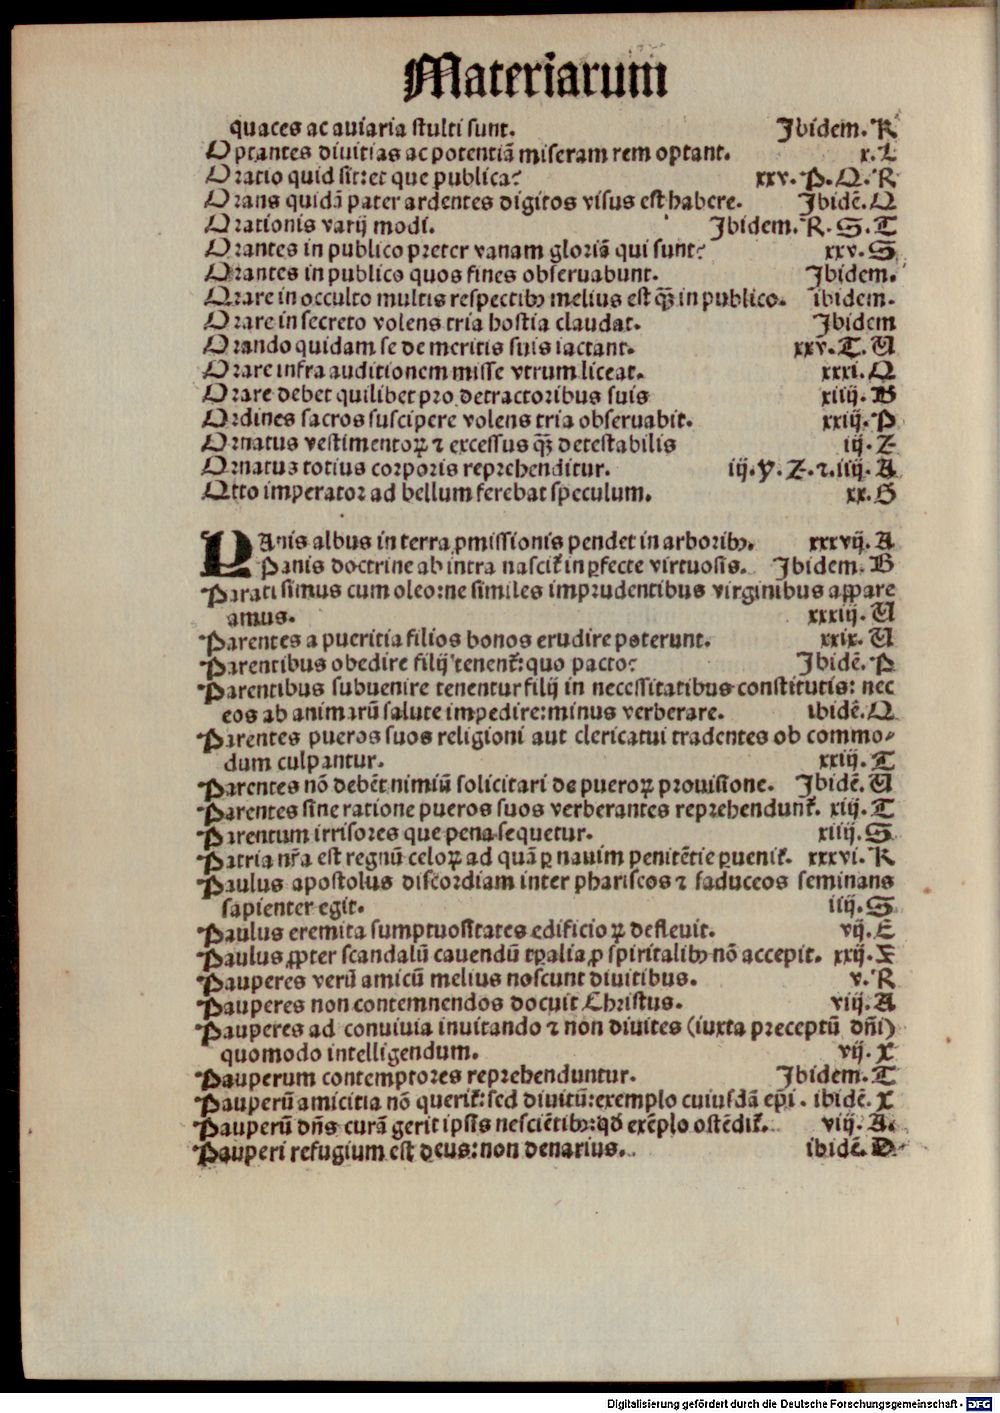 Materiarum
quaces ac auiaria stulti sunt. Ibidem. R
Optantes diuitias ac potentiā miseram rem optant. x. L
Oratio quid sit: et que publica? xxv. P. Q. R
Orans quidā pater ardentes digitos visus est habere. Ibidē. Q
Orationis varij modi. Ibidem. R. S. T
Orantes in publico preter vanam gloriā qui sunt? xxv. S
Orantes in publico quos fines obseruabunt. Ibidem.
Orare in occulto multis respectibꝫ melius est qꝫ̄ in publico. ibidem.
Orare in secreto volens tria hostia claudat. Ibidem
Orando quidam se de meritis suis iactant. xxv. T. U
Orare infra auditionem misse vtrum liceat. xxxi. Q
Orare debet quilibet pro detractoribus suis xiiij. B
Ordines sacros suscipere volens tria obseruabit. xxiij. P
Ornatus vestimentoꝝ ⁊ excessus qꝫ̄ detestabilis iij. Z
Ornatus totius corporis reprehenditur. iij. Y. Z. ⁊. iiij. A
Otto imperator ad bellum ferebat speculum. xx. G
PAnis albus in terra ꝓmissionis pendet in arboribꝫ. xxxvij. A
Panis doctrine ab intra nascit᷑ in ꝑfecte virtuosis. Ibidem. B
Parati simus cum oleo: ne similes imprudentibus virginibus aꝑpare
amus. xxxiij. U
Parentes a pueritia filios bonos erudire poterunt. xxix. U
Parentibus obedire filij tenent᷑: quo pacto? Ibidē. P
Parentibus subuenire tenentur filij in necessitatibus constitutis: nec
eos ab animarū salute impedire: minus verberare. ibidē. Q
Parentes pueros suos religioni aut clericatui tradentes ob commo⸗
dum culpantur. xxiij. T
Parentes nō debēt nimiū solicitari de pueroꝝ prouisione. Ibidē. U
Parentes sine ratione pueros suos verberantes reprehendunt᷑. xiij. T
Parentum irrisores que pena sequetur. xiiij. S
Patria nr̄a est regnū celoꝝ ad quā ꝑ nauim penitētie ꝑuenit᷑. xxxvi. R
Paulus apostolus discordiam inter phariseos ⁊ saduceos seminans
sapienter egit. iiij. S
Paulus eremita sumptuositates edificioꝝ defleuit. vij. E
Paulus ꝓpter scandalū cauendū tꝑalia ꝓ spiritalibꝫ nō accepit. xxij. X
Pauperes verū amicū melius noscunt diuitibus. v. R
Pauperes non contemnendos docuit Christus. viij. A
Pauperes ad conuiuia inuitando ⁊ non diuites (iuxta preceptū dn̄i)
quomodo intelligendum. vij. X
Pauperum contemptores reprehenduntur. Ibidem. T
Pauperū amicitia nō querit᷑: sed diuitū: exemplo cuiusdā ep̄i. ibidē. X
Pauperū dn̄s curā gerit ipsis nesciētibꝫ: qd̄ exēplo ostēdit᷑. viij. A.
Pauperi refugium est deus: non denarius. ibidē. D
Digitalisierung gefördert durch die Deutsche Forschungsgemeinschaft - DFG